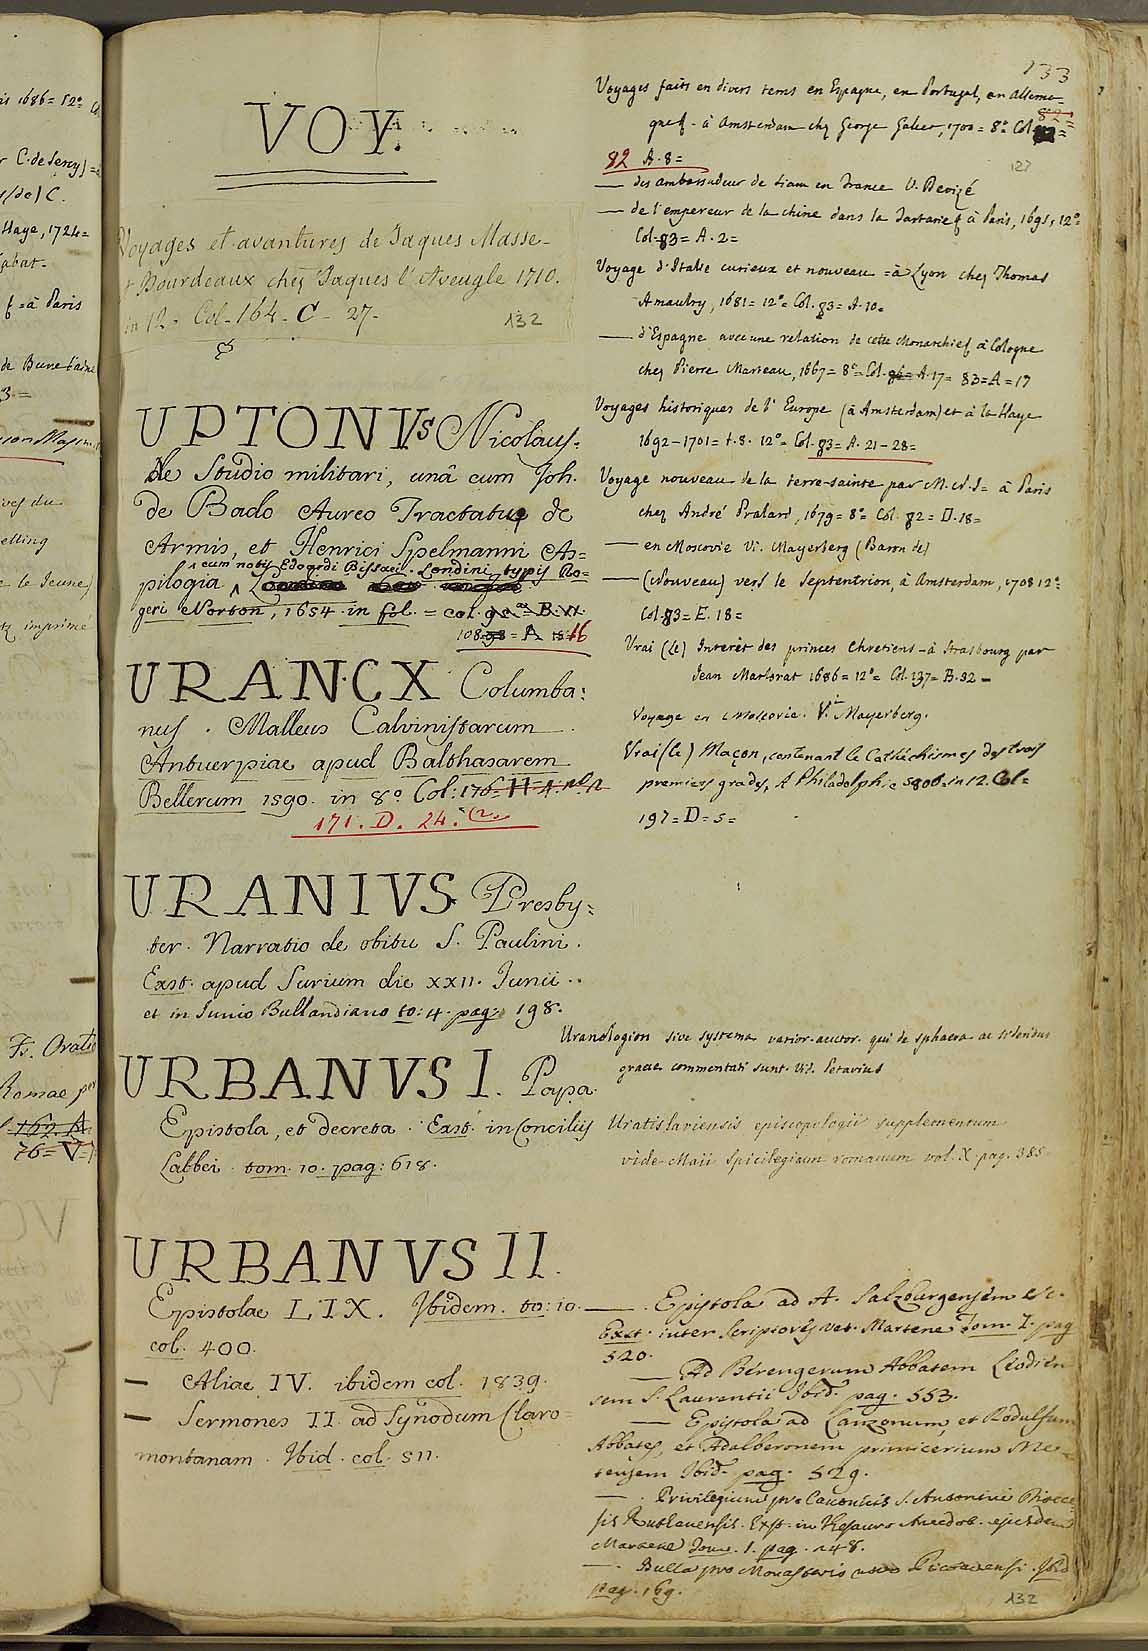 is 1686 = 12°
r C. de Sercy) =
(de) C.
Haye, 1724 =
= à Paris
de Bune
3 =
ves du
elling
e le Jeune)
imprimé
Fr. Orati
Romae
162. A
76 = V =
VOY.
Voyages et avantures de Jaques Masse-
Bourdeaux chez Jaques l'Aveugle 1710.
in 12. Col. 164. C. 27.
132
UPTONVs Nicolaus.
de Studio militari, unâ cum Joh.
de Bado Aureo Tractatus de
Armis, et Henrici Spelmanni As=
cum notis Edoardi Bissaei. Londini, typis Ro=
pilogia
geri Norton, 1654. in fol. = Col. B. 11.
108 = A 16
URANCX Columba:
nus. Malleus Calvinistarum
Antuerpiae apud Balthasarem
Bellerum 1590. in 8° Col: 176 = H = A.
171. D. 24. (2.
URANIVS Presby:
ter. Narratio de obitu S. Paulini.
Exst. apud Surium die XXII. Junii..
et in Junio Bullandiano to: 4. pag: 198.
URBANVS I. Papa.
Epistola, et decreta. Exst. in Conciliis
Labbei. tom. 10. pag: 618.
URBANVS II.
Epistolae LIX. Ibidem. to: 10.
col. 400.
— Aliae IV. ibidem col. 1839.
— Sermones II. ad Synodum Claro=
montanam. Ibid. col. 511.
133
Voyages faits en divers tems en Espagne, en Portugal, en Allema-
gne &. à Amsterdam chez George Galler, 1700 = 8° Col.
82 =
82 A. 8 =
127
— des ambassadeur de Siam en France V. Devizé
— de l'empereur de la Chine dans la Tartarie & à Paris, 1695, 12°
Col. 83 = A. 2 =
Voyage d'Italie curieux et nouveau = à Lyon chez Thomas
Amaulry, 1681 = 12° = Col. 83 = A. 10 =
— d'Espagne avec une relation de cette Monarchie &. à Cologne
chez Pierre Marteau, 1667 = 8° = Col. 86 = A. 17 = 83 = A = 17
Voyages historiques de l'Europe (à Amsterdam) et à la Haye
1692 - 1701 = t. 8. 12° = Col. 83 = A. 21 - 28 =
Voyage nouveau de la terre-sainte par M. N. J = à Paris
chez André Pralard, 1679 = 8° = Col. 82 = D. 18 =
— en Moscovie Vi. Mayerberg (Baron de)
— (Nouveau) vers le Septentrion, à Amsterdam, 1708 12°
Col. 83 = E. 18 =
Vrai (Le) Interêt des princes Chretiens - à Strasbourg par
Jean Marlorat 1686 = 12° = Col. 137 = B. 32 -
Voyage en Moscovie. V. Mayerberg.
Vrai (le) Maçon, contenant le Cathéchismes des trois
premiers grades, A Philadelphie 5806. in 12. Col =
197 = D = 5 =
Uranologion sive systema varior. auctor. qui de sphaera ac sideribus
graece commentati sunt. Vid. Petavius
Uratislaviensis episcopologii supplementum
vide Maii Spicilegium romanum vol. X. pag. 385
— . Epistola ad A. Salzburgensem &c.
Exst. inter Scriptores vet. Martene Tom. I. pag
520.
— Ad Berengerum Abbatem Leodien
sem S. Laurentii Ibid. pag. 553.
— Epistola ad Lanzonum, et Rodulfum
Abbates, et Adalberonem primicerium Me=
tensem Ibid. pag. 529.
— . Privilegium pro Canonicis S. Antonini Dioece
sis Ruthenensis. Exst. in Thesauro Anecdot. ejusdem
Martene Tom. 1. pag. 248.
— . Bulla pro Monasterio novo Pictavensi. Ibid
pag. 169.
132